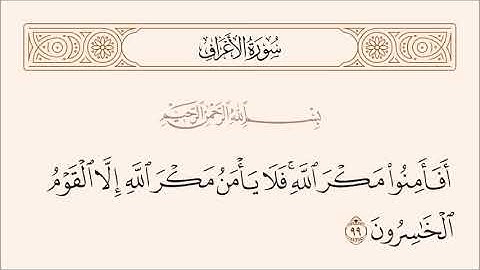 سُورَةُ الأَعْرَافِ
بِسْمِ اللَّهِ الرَّحْمَٰنِ الرَّحِيمِ
أَفَأَمِنُوا۟ مَكْرَ ٱللَّهِ ۚ فَلَا يَأْمَنُ مَكْرَ ٱللَّهِ إِلَّا ٱلْقَوْمُ
ٱلْخَٰسِرُونَ ٩٩